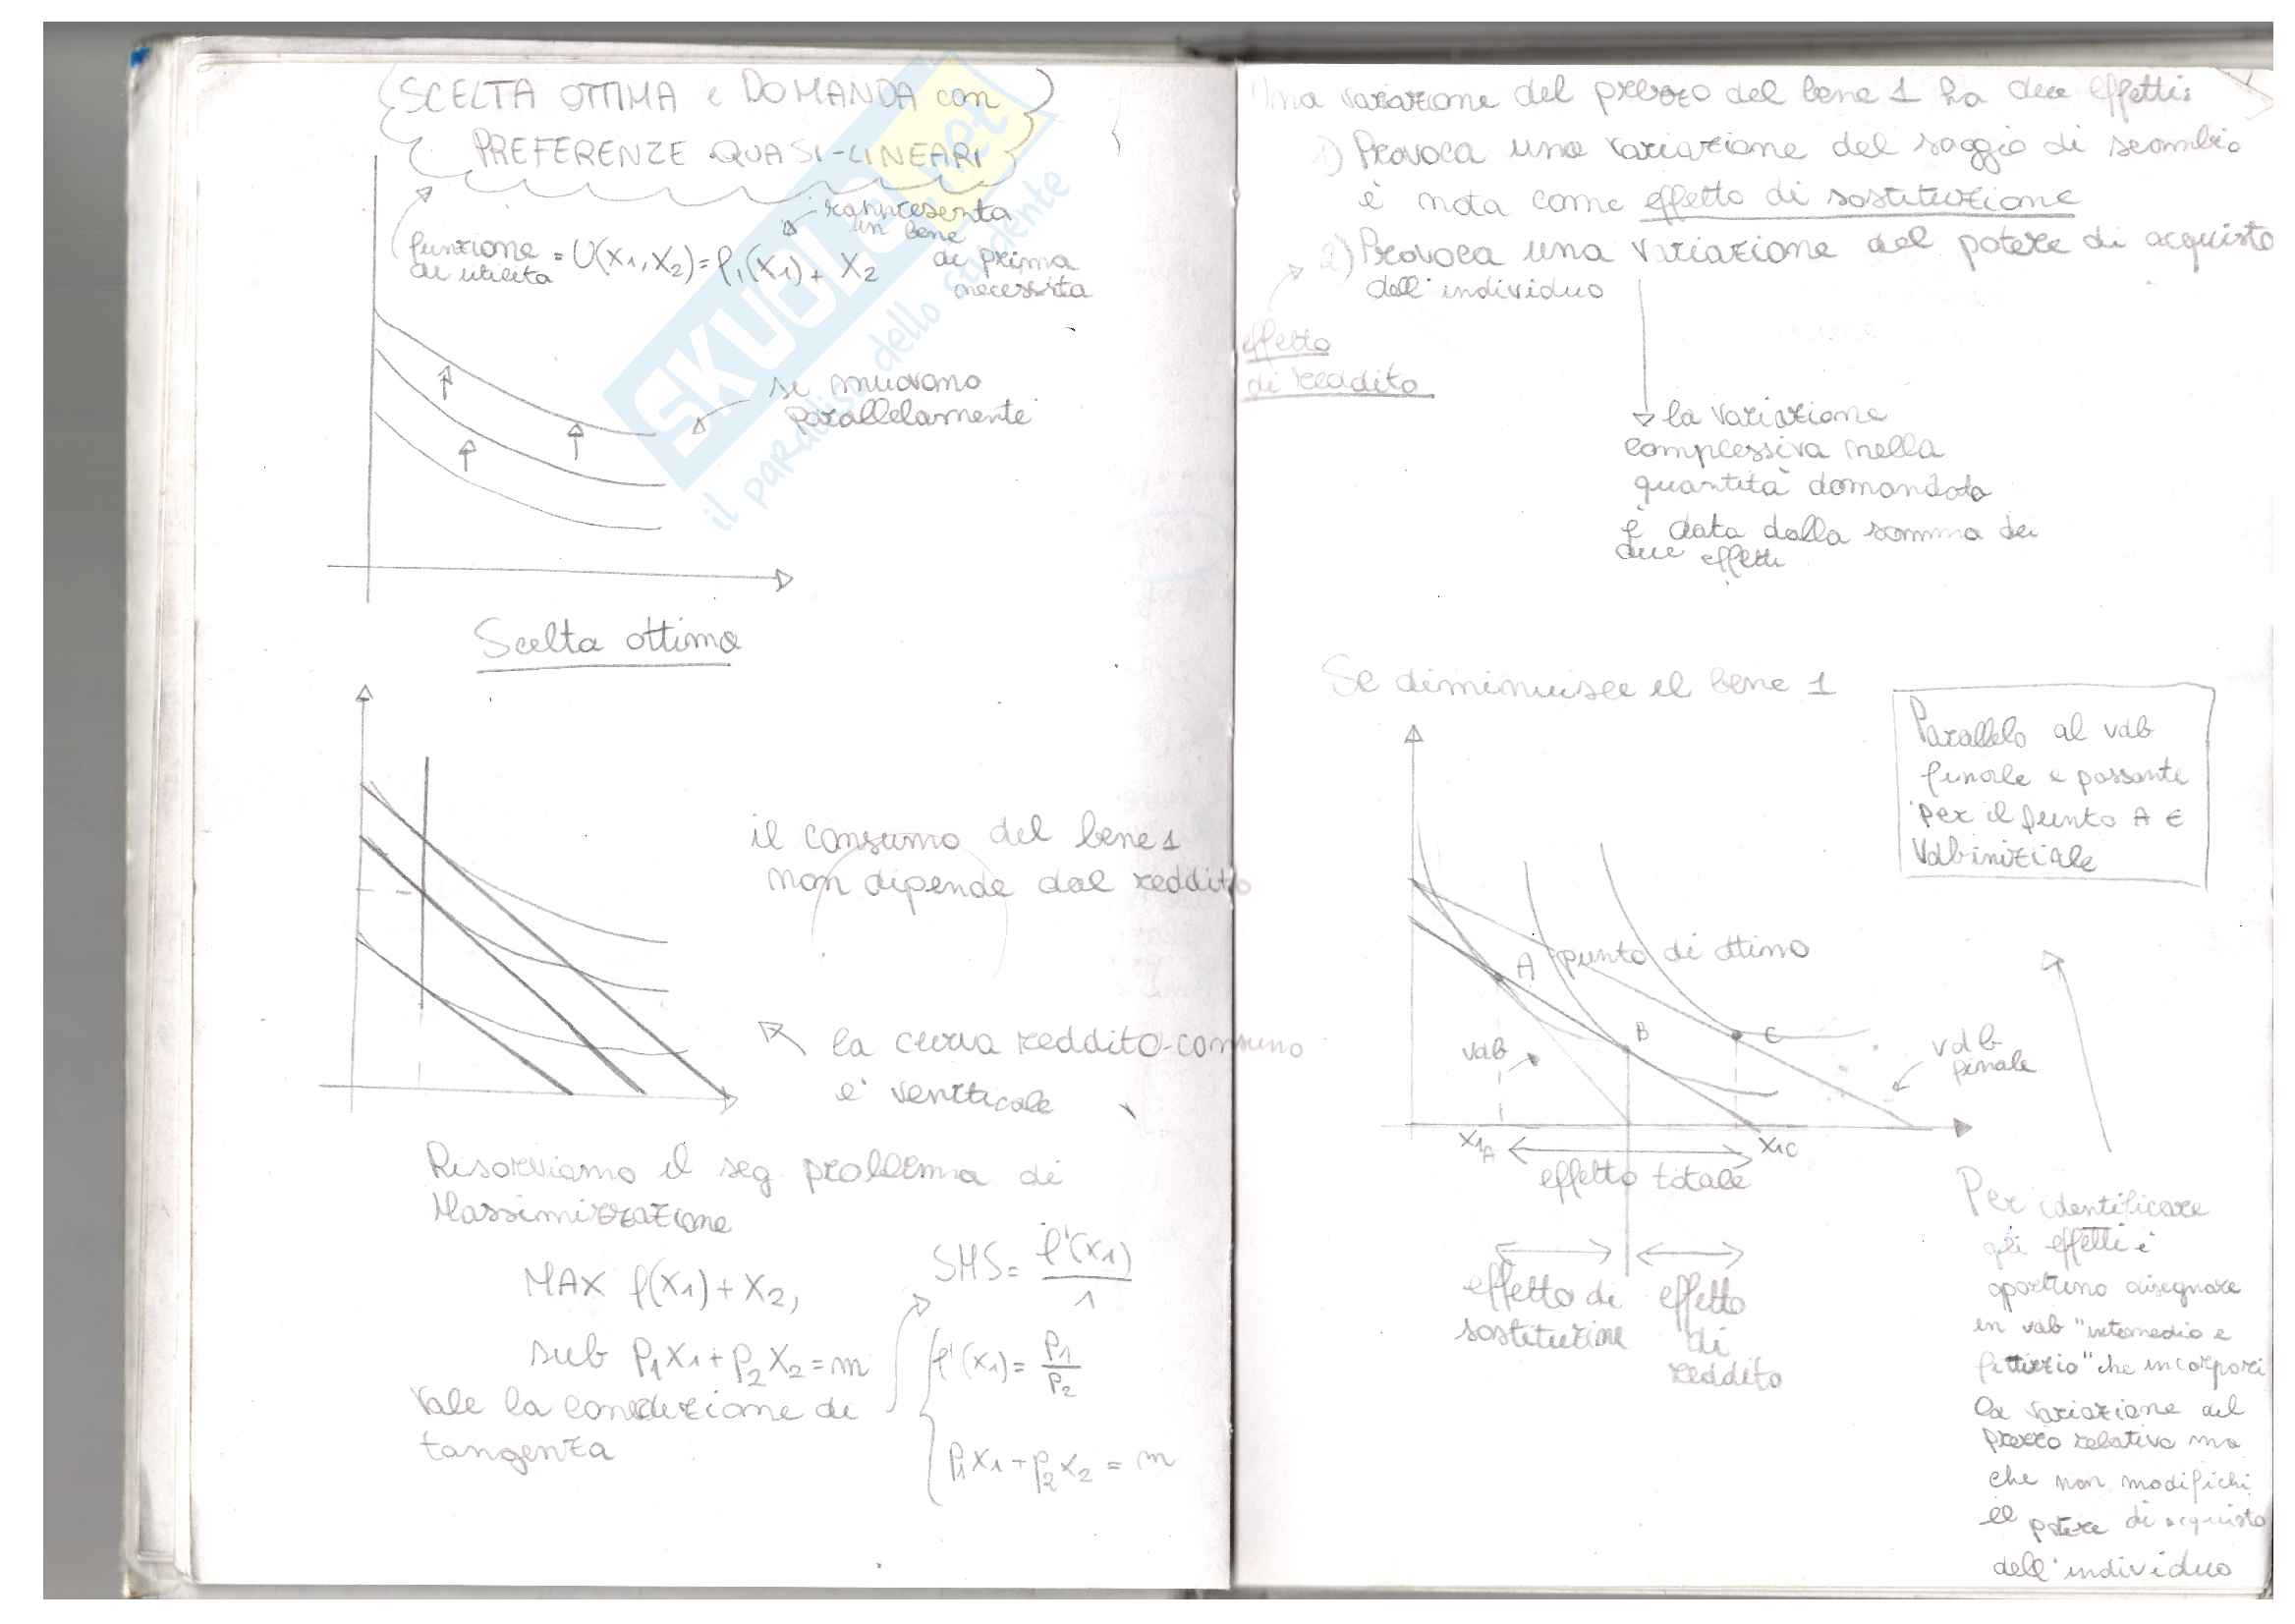 SCELTA OTTIMA e DOMANDA con
PREFERENZE QUASI-LINEARI
funzione
di utilità
= U(x1,x2)= f1(x1)+ x2
rappresenta
un bene
di prima
necessità
si muovono
parallelamente
Scelta ottima
il consumo del bene 1
non dipende dal reddito
la curva reddito-consumo
e' verticale
Risolviamo il seg problema di
Massimizzazione
MAX f(x1)+x2,
sub p1x1+p2x2=m
Vale la condizione di
tangenza
SMS= f'(x1)
1
f'(x1)= p1
p2
p1x1+p2x2 = m
SKUOLA.net
il paradiso dello studente
Una variazione del prezzo del bene 1 ha due effetti:
1) Provoca una variazione del saggio di scambio
è nota come effetto di sostituzione
2) Provoca una variazione del potere di acquisto
dell'individuo
effetto
di reddito
la variazione
complessiva nella
quantità domandata
è data dalla somma dei
due effetti
Se diminuisce il bene 1
Parallelo al vdb
finale e passante
per il punto A E
Vdb iniziale
A punto di ottimo
B
C
vdb
vdb
finale
x1A
x1C
effetto totale
effetto di
sostituzione
effetto
di
reddito
Per identificare
gli effetti è
oportuno disegnare
un vdb "intermedio e
fittizio" che incorpori
la variazione del
prezzo relativo ma
che non modifichi
il potere di acquisto
dell'individuo